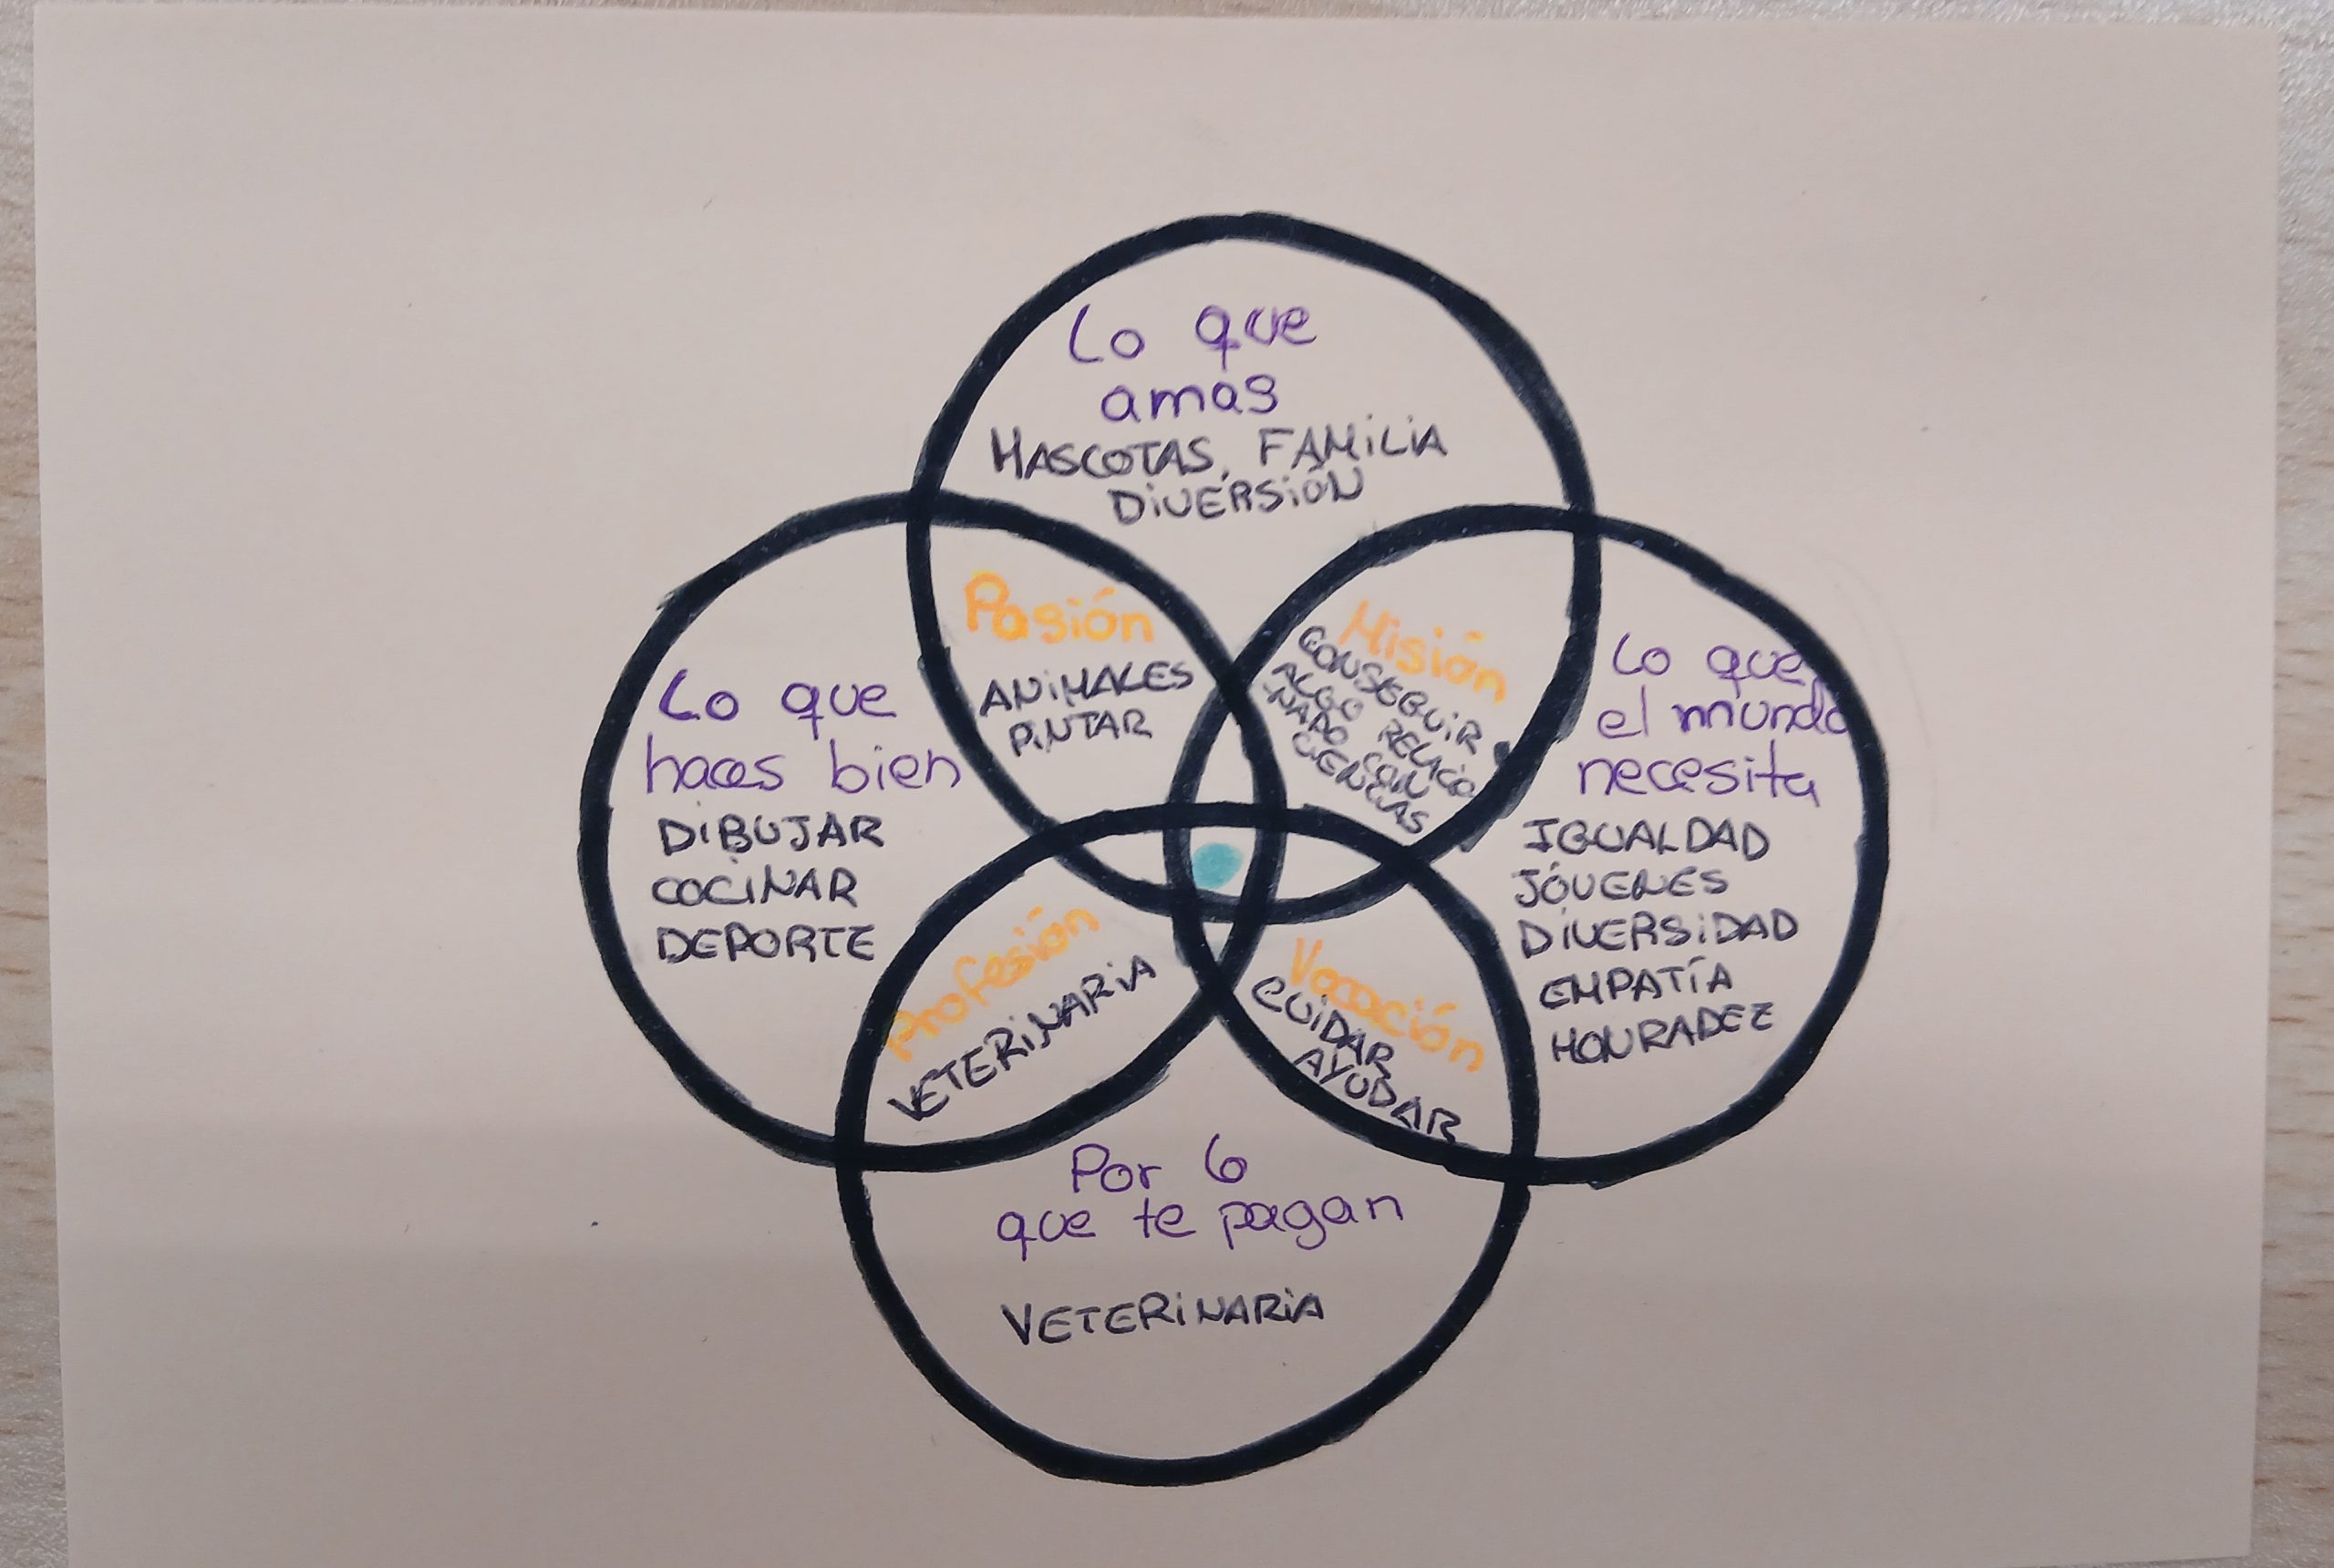 Lo que
amas
MASCOTAS, FAMILIA
DIVERSIÓN
Pasión
ANIMALES
PINTAR
Misión
CONSEGUIR
ALGO RELACIO
NADO CON
CIENCIAS
Lo que
haces bien
DIBUJAR
COCINAR
DEPORTE
Lo que
el mundo
necesita
IGUALDAD
JÓVENES
DIVERSIDAD
EMPATÍA
HONRADEZ
Profesión
VETERINARIA
Vocación
CUIDAR
AYUDAR
Por lo
que te pagan
VETERINARIA